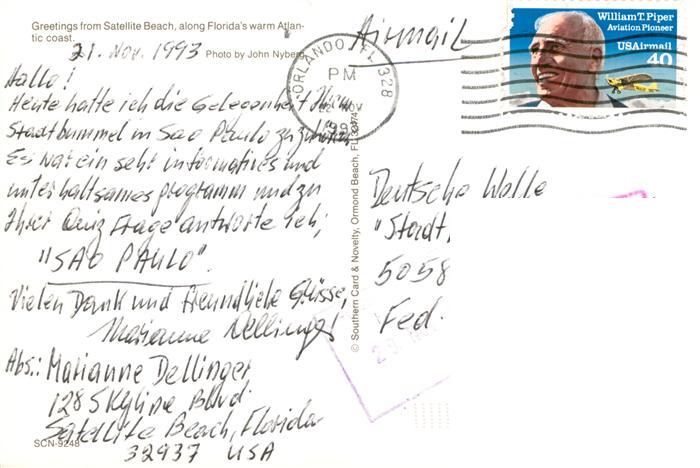 Greetings from Satellite Beach, along Florida's warm Atlan-
tic coast.
21. Nov. 1993 Photo by John Nyberg
Hallo!
Heute hatte ich die Gelegenheit Ihrem
Stadtbummel in Sao Paulo zuzuhören
Es war ein sehr informatives und
unterhaltsames programm und zu
Ihrer Quiz Frage antworte ich;
"SAO PAULO".
Vielen Dank und freundliche Grüsse,
Marianne Dellinger
Abs.: Marianne Dellinger
128 Skyline Blvd.
Satellite Beach, Florida
32937 USA
SCN-9248
© Southern Card & Novelty, Ormond Beach, FL 32174
Airmail
ORLANDO, FL 328
PM
NOV
William T. Piper
Aviation Pioneer
USAirmail
40
Deutsche Welle
"Stadt
5058
Fed.